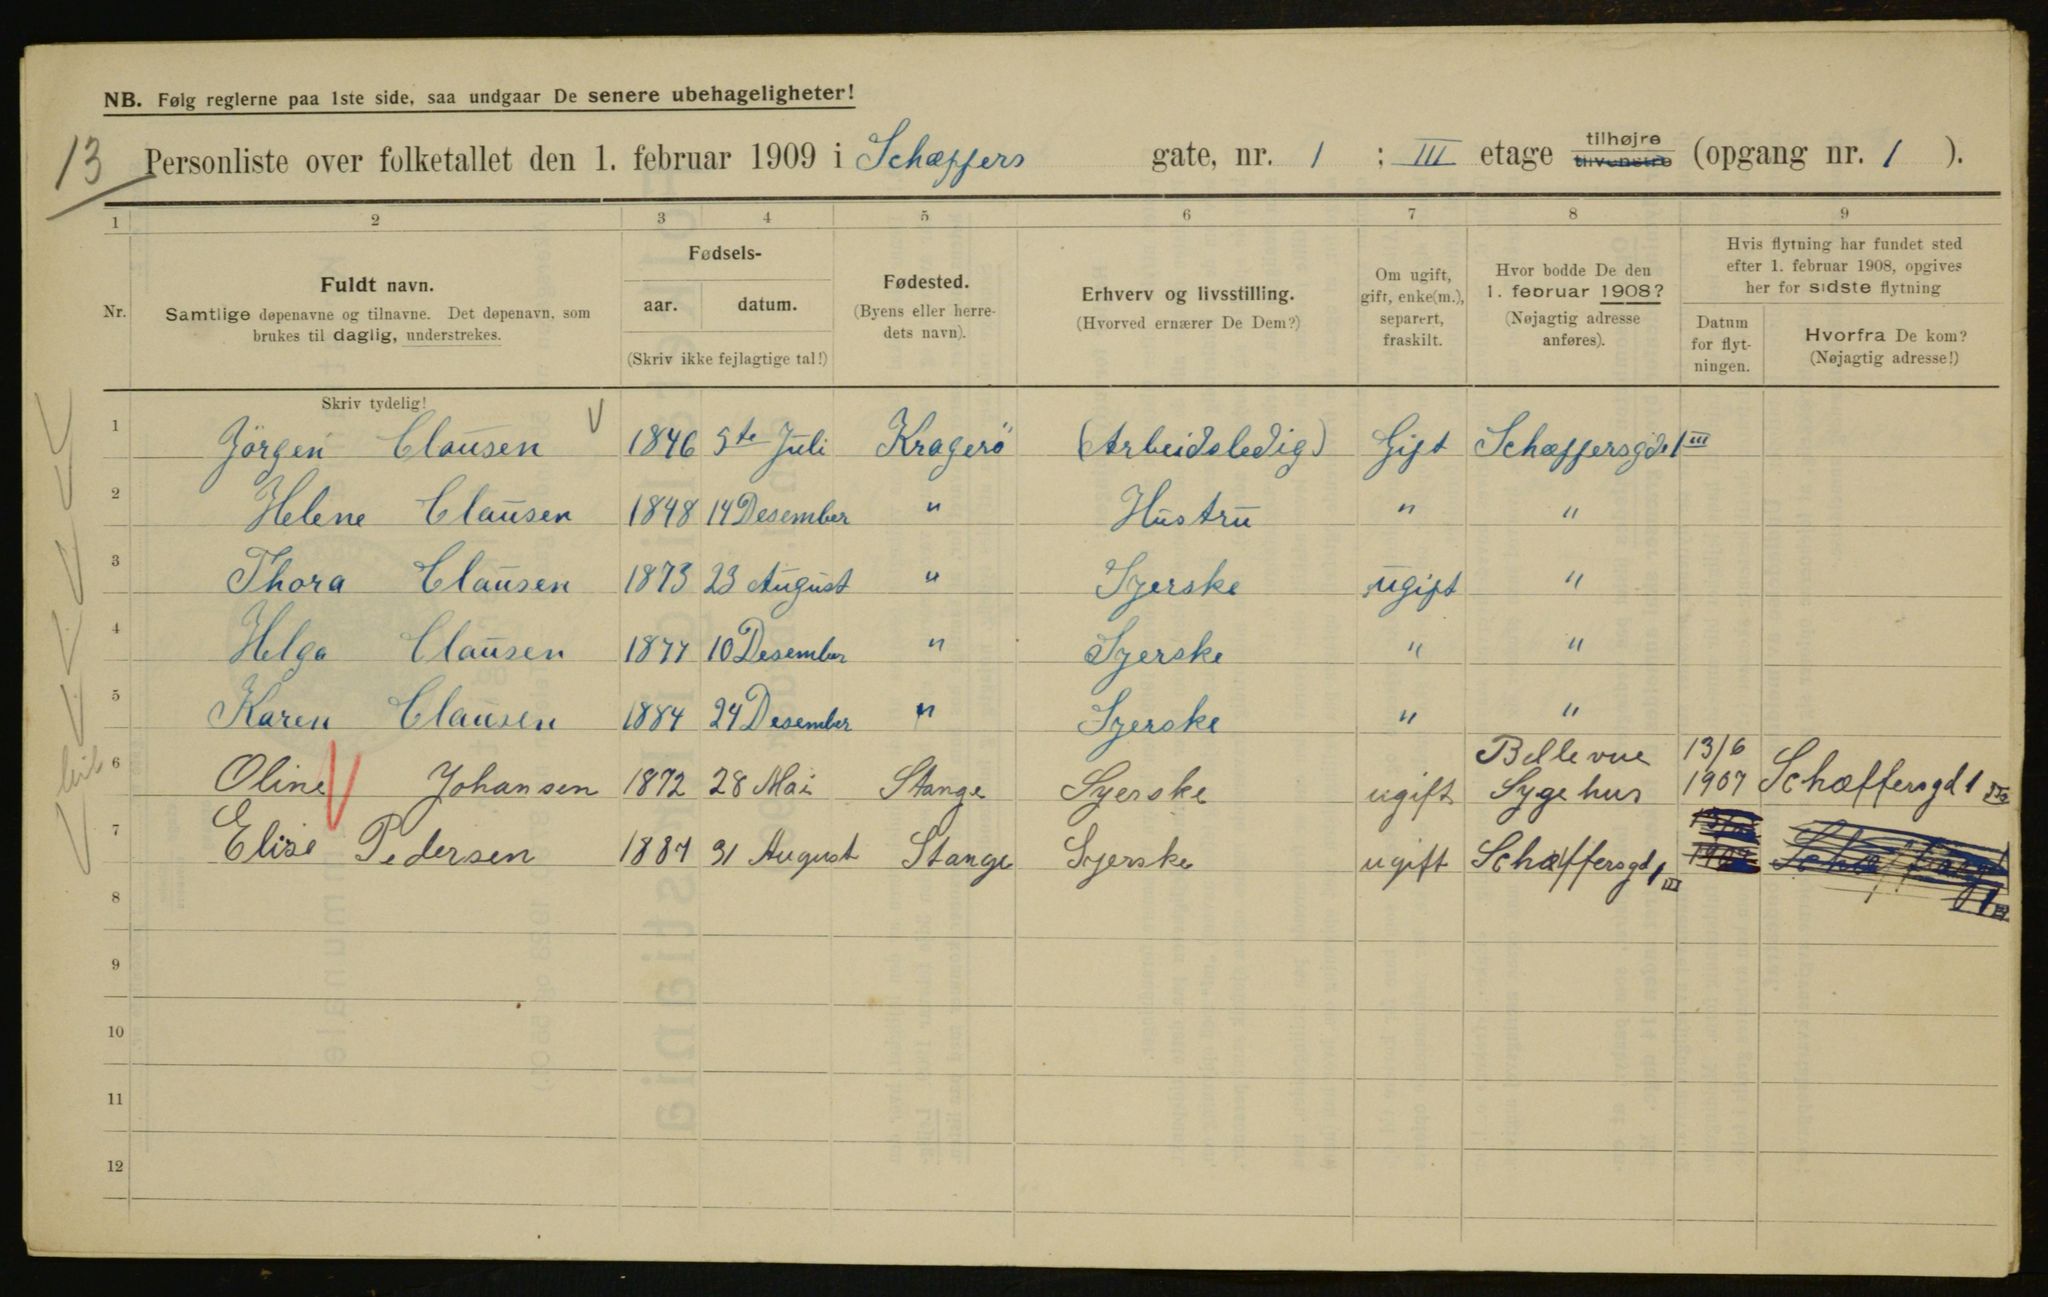 NB. Følg reglerne paa 1ste side, saa undgaar De senere ubehageligheter!
13 Personliste over folketallet den 1. februar 1909 i Schæffers gate, nr. 1 ; III etage tilhøjre tilvenstre (opgang nr. 1 ).
1 2 3 4 5 6 7 8 9
Nr. Fuldt navn. Samtlige døpenavne og tilnavne. Det døpenavn, som brukes til daglig, understrekes.
Fødsels- aar. datum. (Skriv ikke fejlagtige tal!)
Fødested. (Byens eller herredets navn).
Erhverv og livsstilling. (Hvorved ernærer De Dem?)
Om ugift, gift, enke(m.), separert, fraskilt.
Hvor bodde De den 1. februar 1908? (Nøjagtig adresse anføres).
Hvis flytning har fundet sted efter 1. februar 1908, opgives her for sidste flytning
Datum for flytningen. Hvorfra De kom? (Nøjagtig adresse!)
Skriv tydelig!
1 Jörgen Clausen 1846 5te Juli Kragerö (Arbeidsledig) Gift Schæffersgd 1 III
2 Helene Clausen 1848 14 Desember " Hustru " "
3 Thora Clausen 1873 23 August " Syerske ugift "
4 Helga Clausen 1877 10 Desember " Syerske " "
5 Karen Clausen 1884 24 Desember " Syerske " "
6 Oline Johansen 1872 28 Mai Stange Syerske ugift Bellevue Sygehus 13/6 1907 Schæffersgd 1 III
7 Elise Pedersen 1887 31 August Stange Syerske ugift Schæffersgd 1 III
8
9
10
11
12